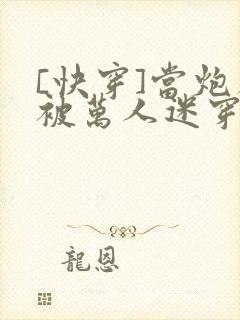 [快穿]當炮
被萬人迷穿
龍恩